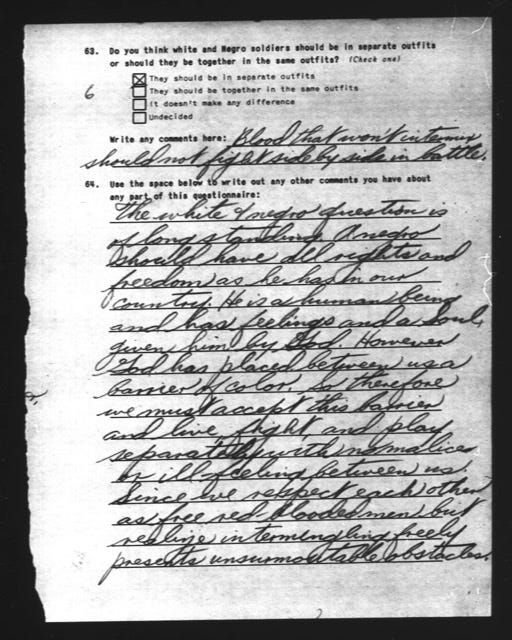 63. Do you think white and Negro soldiers should be in separate outfits
or should they be together in the same outfits? (Check one)
They should be in separate outfits
6 They should be together in the same outfits
It doesn't make any difference
Undecided
Write any comments here: Blood that won't intermix
should not fight side by side in battle.
64. Use the space below to write out any other comments you have about
any part of this questionnaire:
The white & negro question is
of long standing. A negro
should have all rights and
freedom as he has in our
country. He is a human being
and has feelings and a soul,
given him by God. However
God has placed between us a
barrier of color. So therefore
we must accept this barrier
and live, fight, and play
separately with no malice
or ill feeling between us.
Since we respect each other
as free red blooded men but
realize intermingling freely
presents unsurmoutable obstacles.